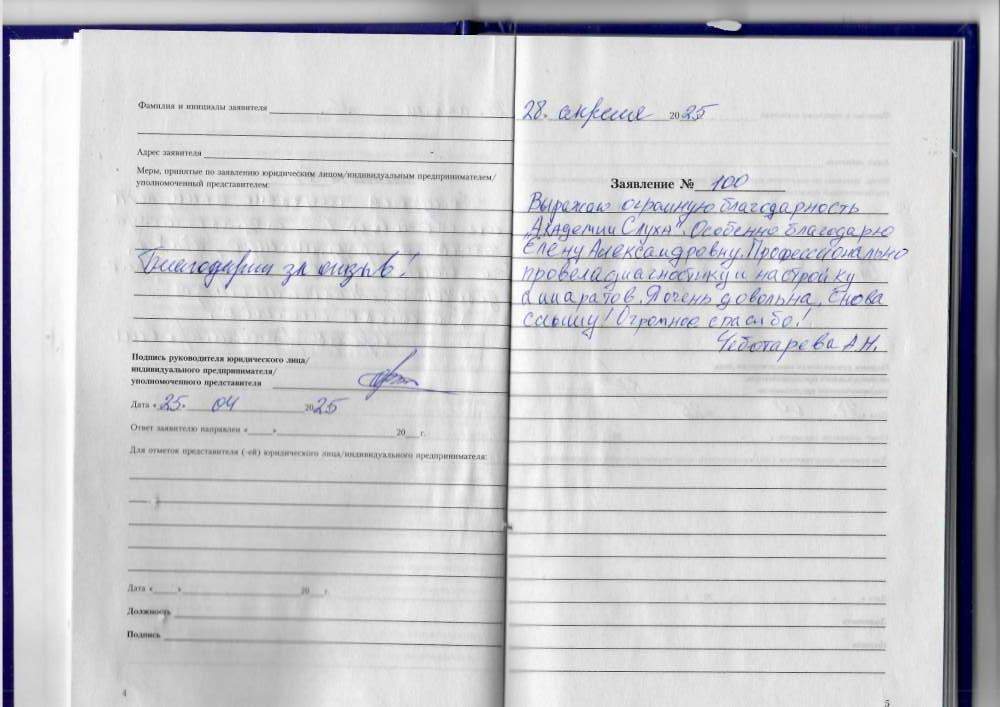 Фамилия и инициалы заявителя
Адрес заявителя
Меры, принятые по заявлению юридическим лицом/индивидуальным предпринимателем/
уполномоченный представителем:
Благодарим за отзыв!
Подпись руководителя юридического лица/
индивидуального предпринимателя/
уполномоченного представителя
Дата «25» 04 2025
Ответ заявителю направлен « » 20 г.
Для отметок представителя (-ей) юридического лица/индивидуального предпринимателя:
Дата « » 20 г.
Должность
Подпись
4
28» апреля 2025
Заявление № 100
Выражаю огромную благодарность
„Академии Слуха". Особенно благодарю
Елену Александровну. Профессионально
провела диагностику и настройку
аппаратов. Я очень довольна. Снова
слышу! Огромное спасибо!
Чеботарева А.Н.
5